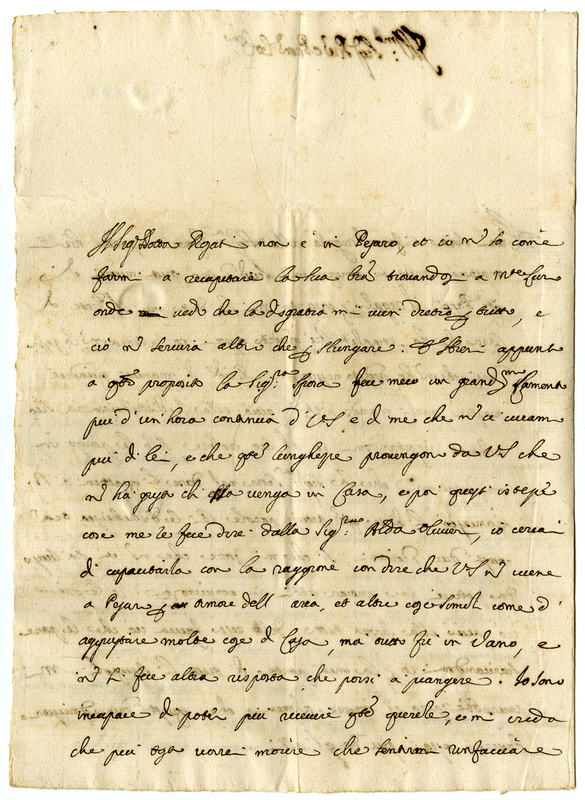 Il Sig.r Dottor Rogati non è in Pesaro, et io n' so come
farmi a recapitare la sua l'ra trovandosi a
onde vedo che la disgratia mi vien dietro p tutto, e
ciò n' servirà altro che p slungare. appunto
a q'to proposito la Sig.ra Sposa fece meco un grand.mo lamento
più d'un'hora continua d'VS, e di me che n' ci curiamo
più di lei, e che q'te lunghezze provengon da VS che
n' ha gusto ch'essa venga in Casa, e poi queste istesse
cose me le fece dire dalla Sig.ra Alda Olivieri, io cercai
di capacitarla con la raggione con dire che VS n' viene
a Pesaro p amore dell'aria, et altre cose simili come d'
aggiustare molte cose di Casa, ma tutto fù in vano, e
n' fece altra risposta che porsi a piangere. Io sono
incapace di poter più ricevere q'te querele, e mi creda
che più tosto vorrei morire che sentirmi rinfacciare